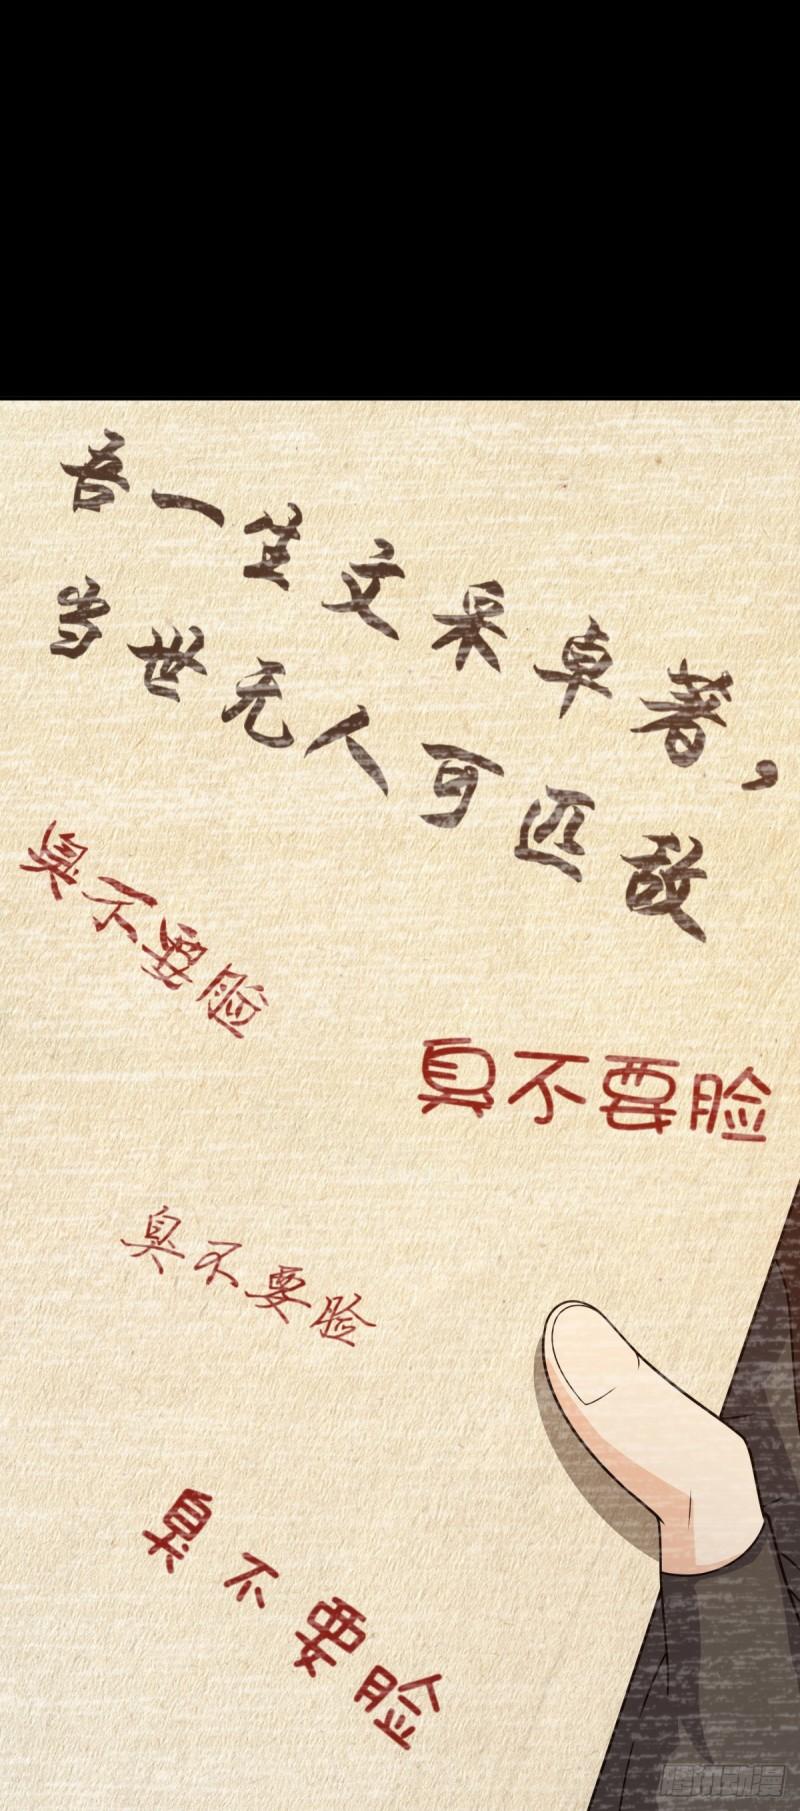 吾一生文采卓著，
当世无人可匹敌
臭不要脸
臭不要脸
臭不要脸
臭不要脸
腾讯动漫